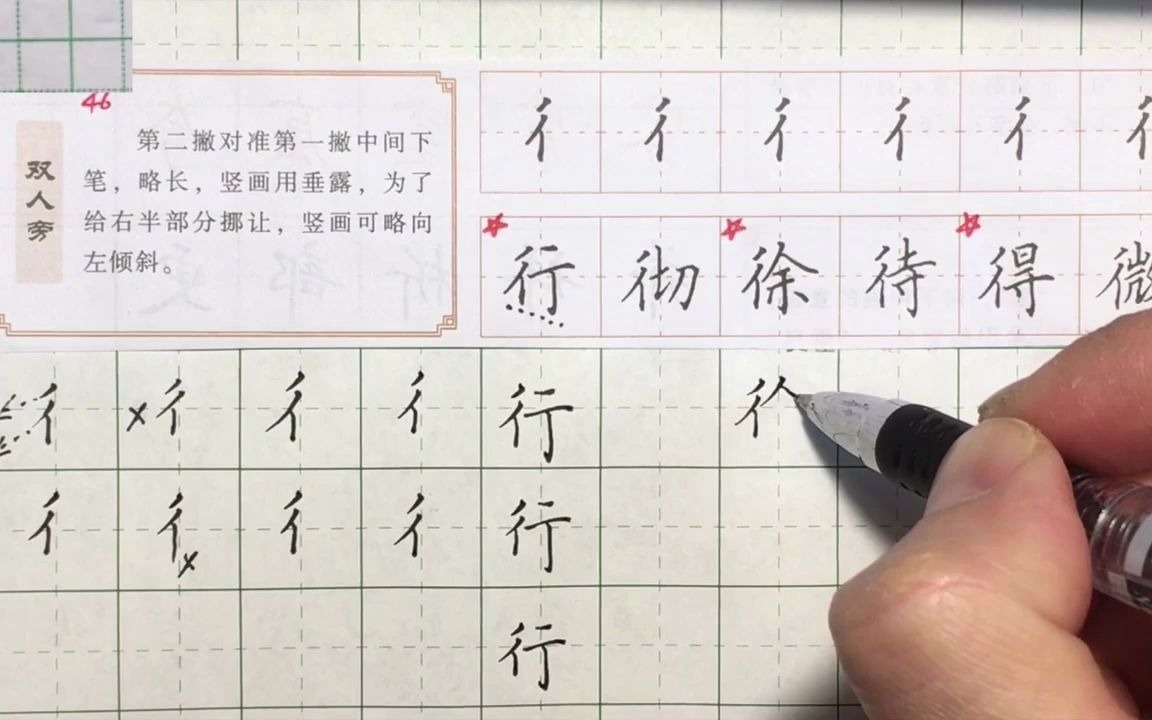 46
双人旁
第二撇对准第一撇中间下
笔，略长，竖画用垂露，为了
给右半部分挪让，竖画可略向
左倾斜。
彳 彳 彳 彳 彳
行 彻 徐 待 得 微
彳 ×彳 彳 彳 行
彳 彳× 彳 彳 行
行